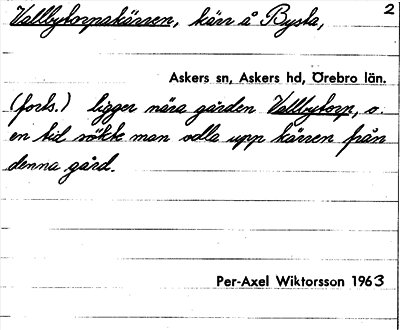 Vallbytorpskärren, kärr å Bysta, 2
Askers sn, Askers hd, Örebro län.
(forts.) ligger nära gården Vallbytorp, o.
en tid sökte man odla upp kärren från
denna gård.
Per-Axel Wiktorsson 1963